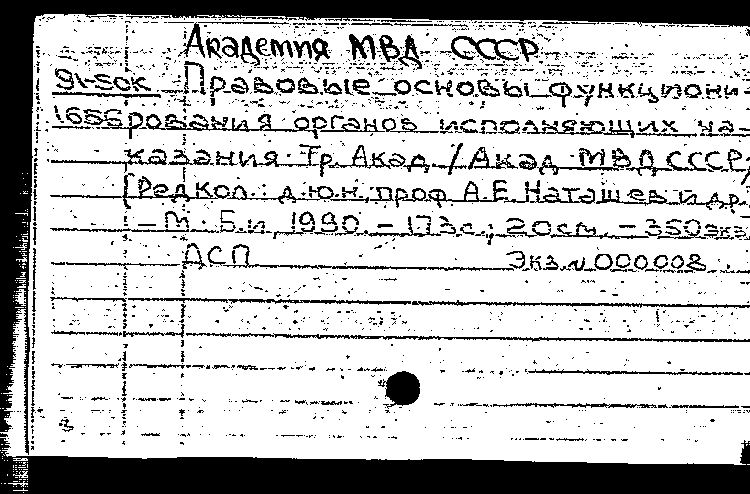 Академия МВД СССР
91-5ОК Правовые основы функциони-
1656 рования органов исполняющих на-
казания. Тр. Акад. / Акад. МВД СССР;
[Редкол.: д.ю.н., проф А.Е. Наташев и др.
– М. Б.и, 1990 – 173с.; 20см. – 350экз
ДСП Экз. № 000008.